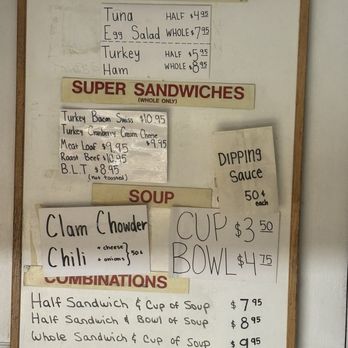 Tuna HALF $4.95
Egg Salad WHOLE $7.95
Turkey HALF $5.95
Ham WHOLE $8.95
SUPER SANDWICHES
(WHOLE ONLY)
Turkey Bacon Swiss $10.95
Turkey Cranberry Cream Cheese $9.95
Meat Loaf $9.95
Roast Beef $10.95
B.L.T. $8.95
(Not toasted)
DIPPING
Sauce
50¢
each
SOUP
Clam Chowder
Chili + cheese + onions } 50¢
CUP $3.50
BOWL $4.75
COMBINATIONS
Half Sandwich & Cup of Soup $7.95
Half Sandwich & Bowl of Soup $8.95
Whole Sandwich & Cup of Soup $9.95